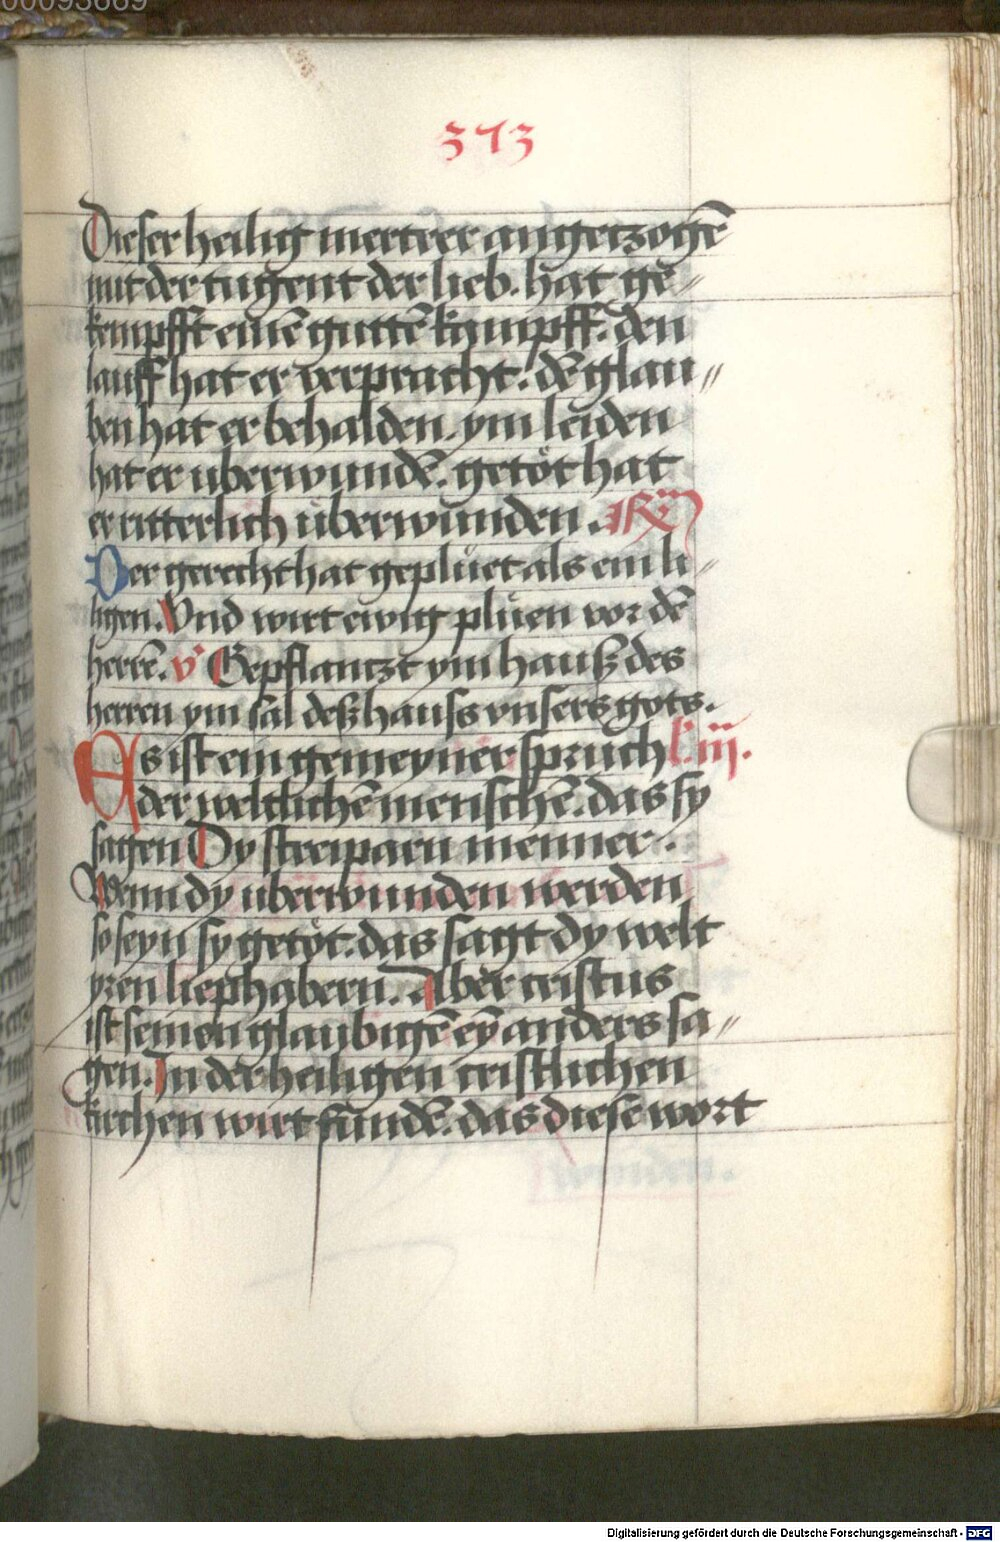 00093669
373
Dieser heilig mertrer angetzogē
mit der tugent der lieb. hat ge⸗
kempfft einē guttē kampff. den
lauff hat er verpracht. dē glau⸗
ben hat er behalden. ym leiden
hat er uberwundē. getöt hat
er ritterlich uberwunden.
Der gerecht hat geplüet als ein li⸗
ligen. Und wirt ewig plüen vor dē
herrē. v̕ Gepflantzt ym hauß des
herren ym sal deß hauss vnsers gots.
Es ist ein gemeyner spruch l. iii.
der weltlichē menschē. das sy
sagen Dy streiparn menner.
Wenn dy uberwunden werden
so seyn sy getöt. das sagt dy welt
yren liephabern. Aber cristus
ist seinen glaubigē eȳ anders sa⸗
gen. In der heiligen cristlichen
kirchen wirt fundē. das diese wort
Digitalisierung gefördert durch die Deutsche Forschungsgemeinschaft - DFG